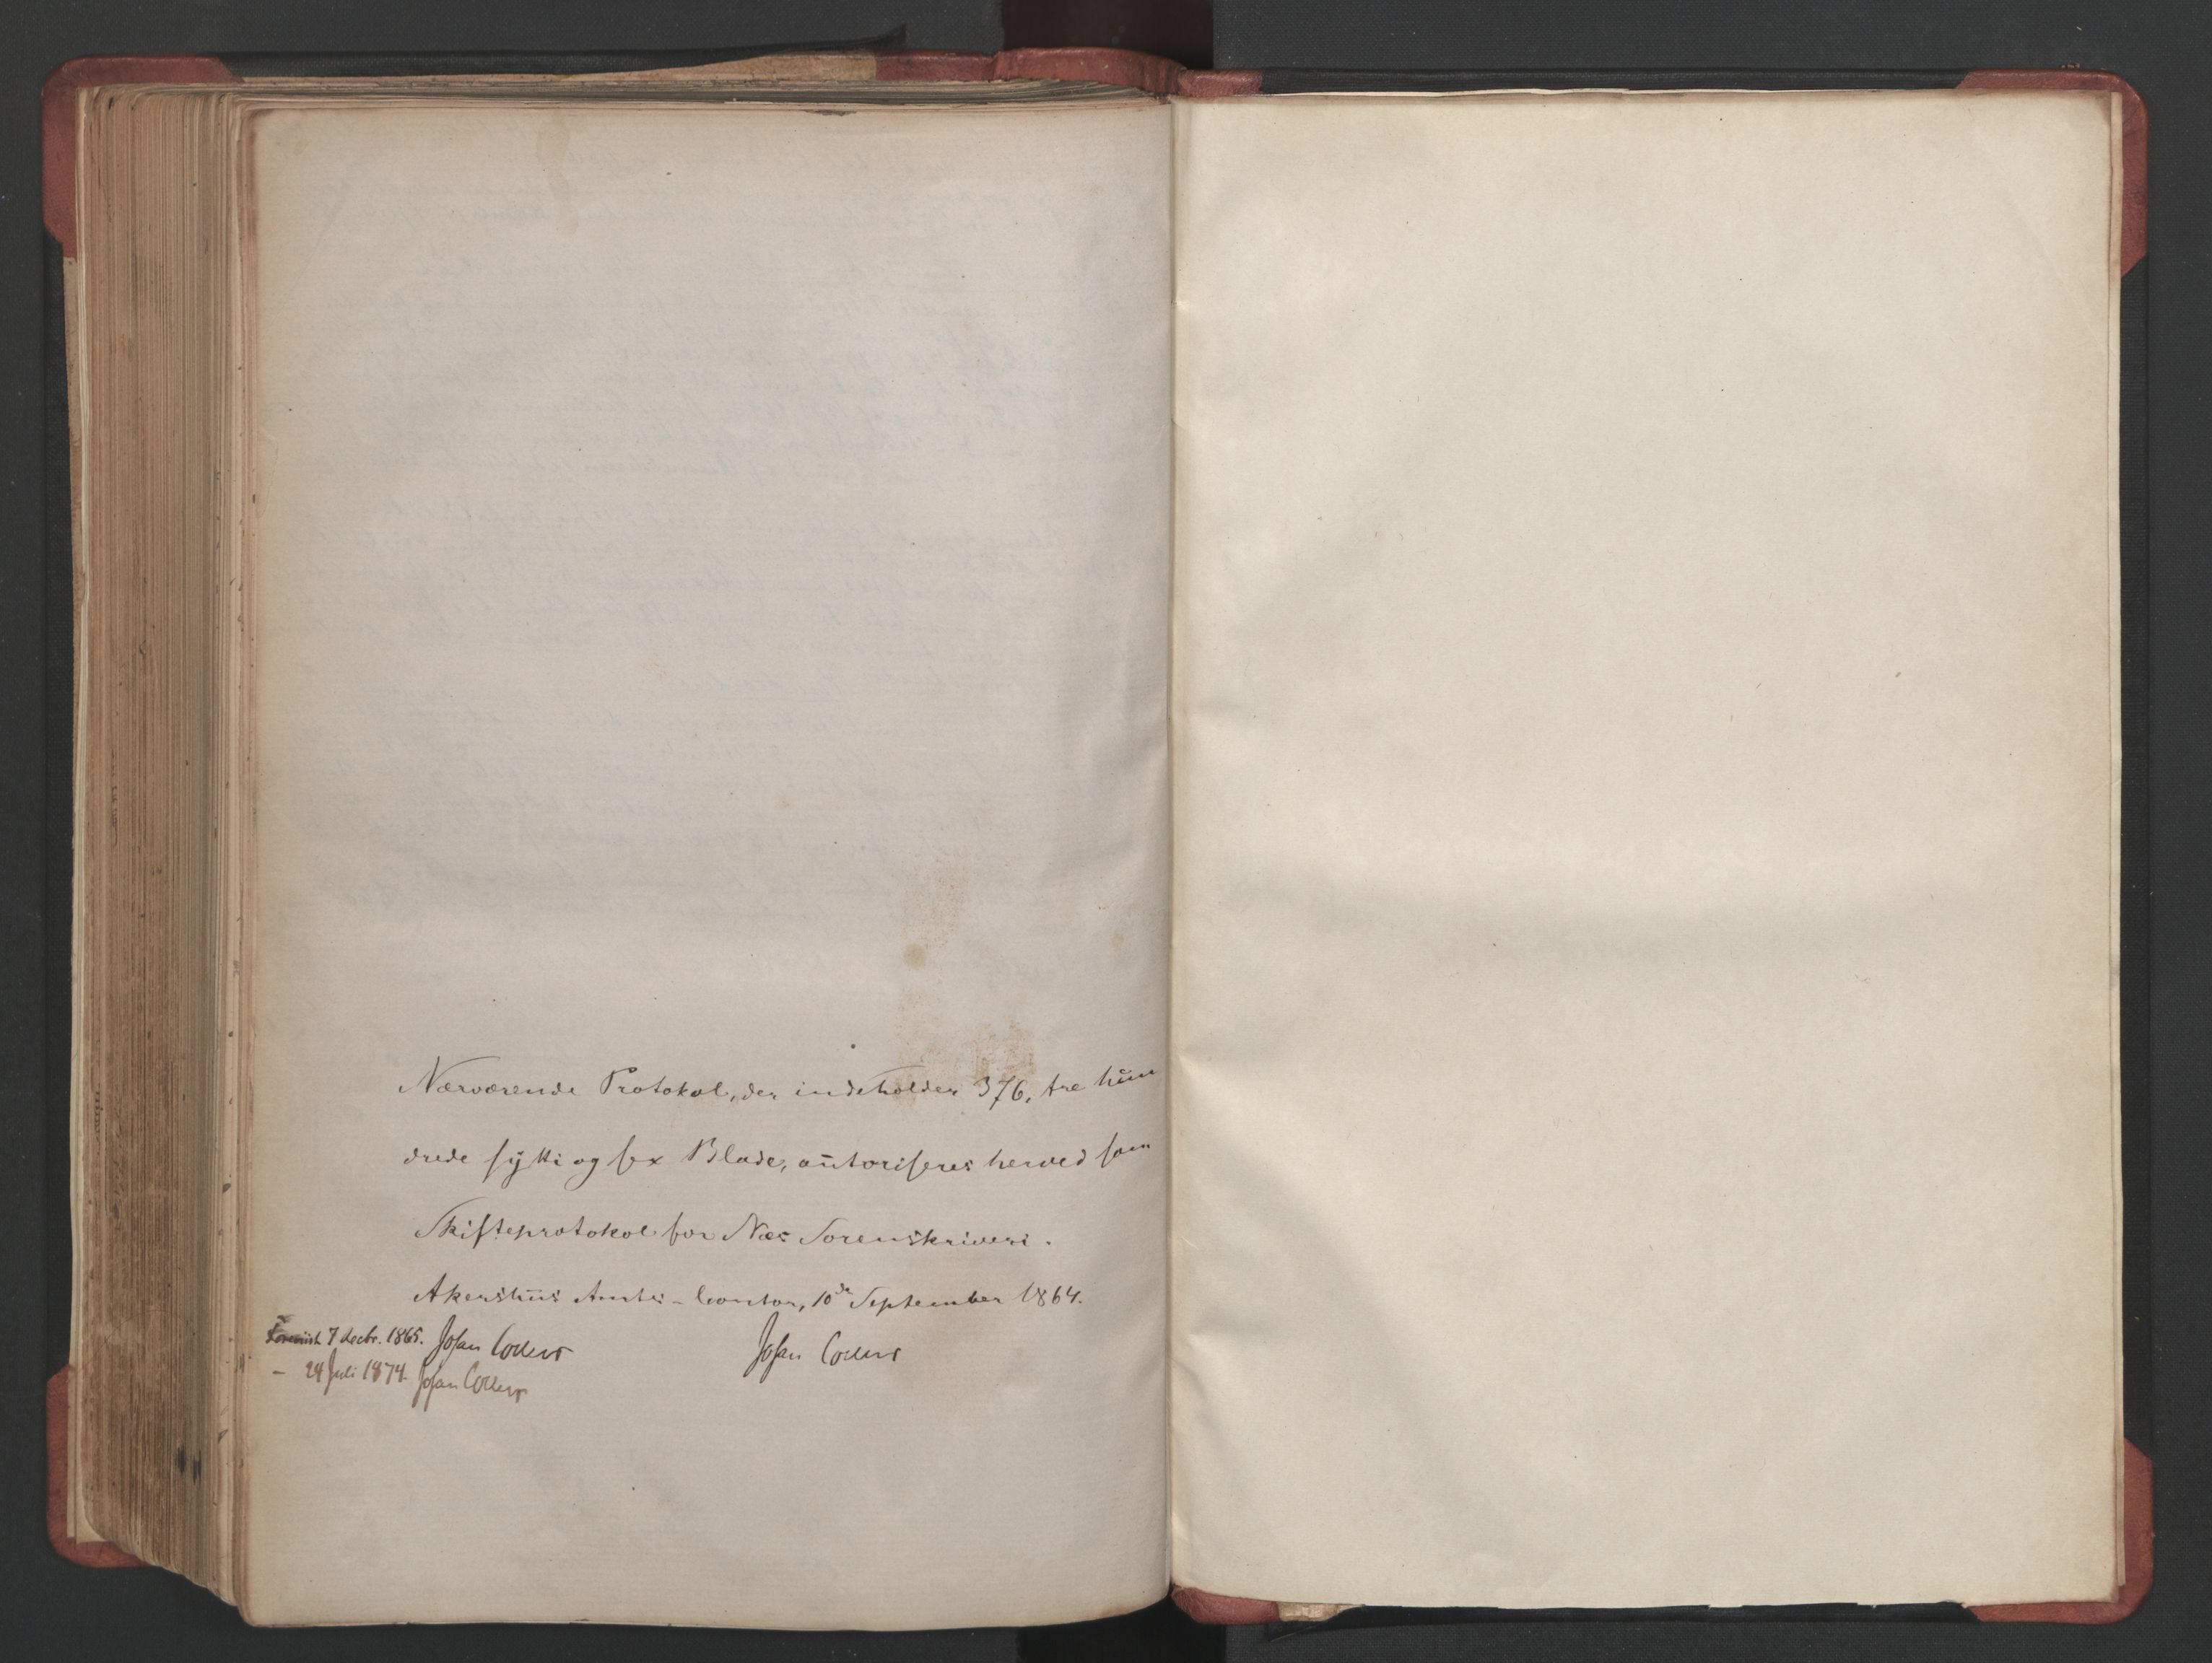 Nærværende Protokol, der indeholder 376, tre hun
drede sytti og sex Blade, autoriseres herved som
Skifteprotokol for Næs Sorenskriveri.
Akershus Amts-Contor, 10de September 1864.
Johan Collett
7 decbr. 1865. Johan Collett
— 24 Juli 1874. Johan Collett